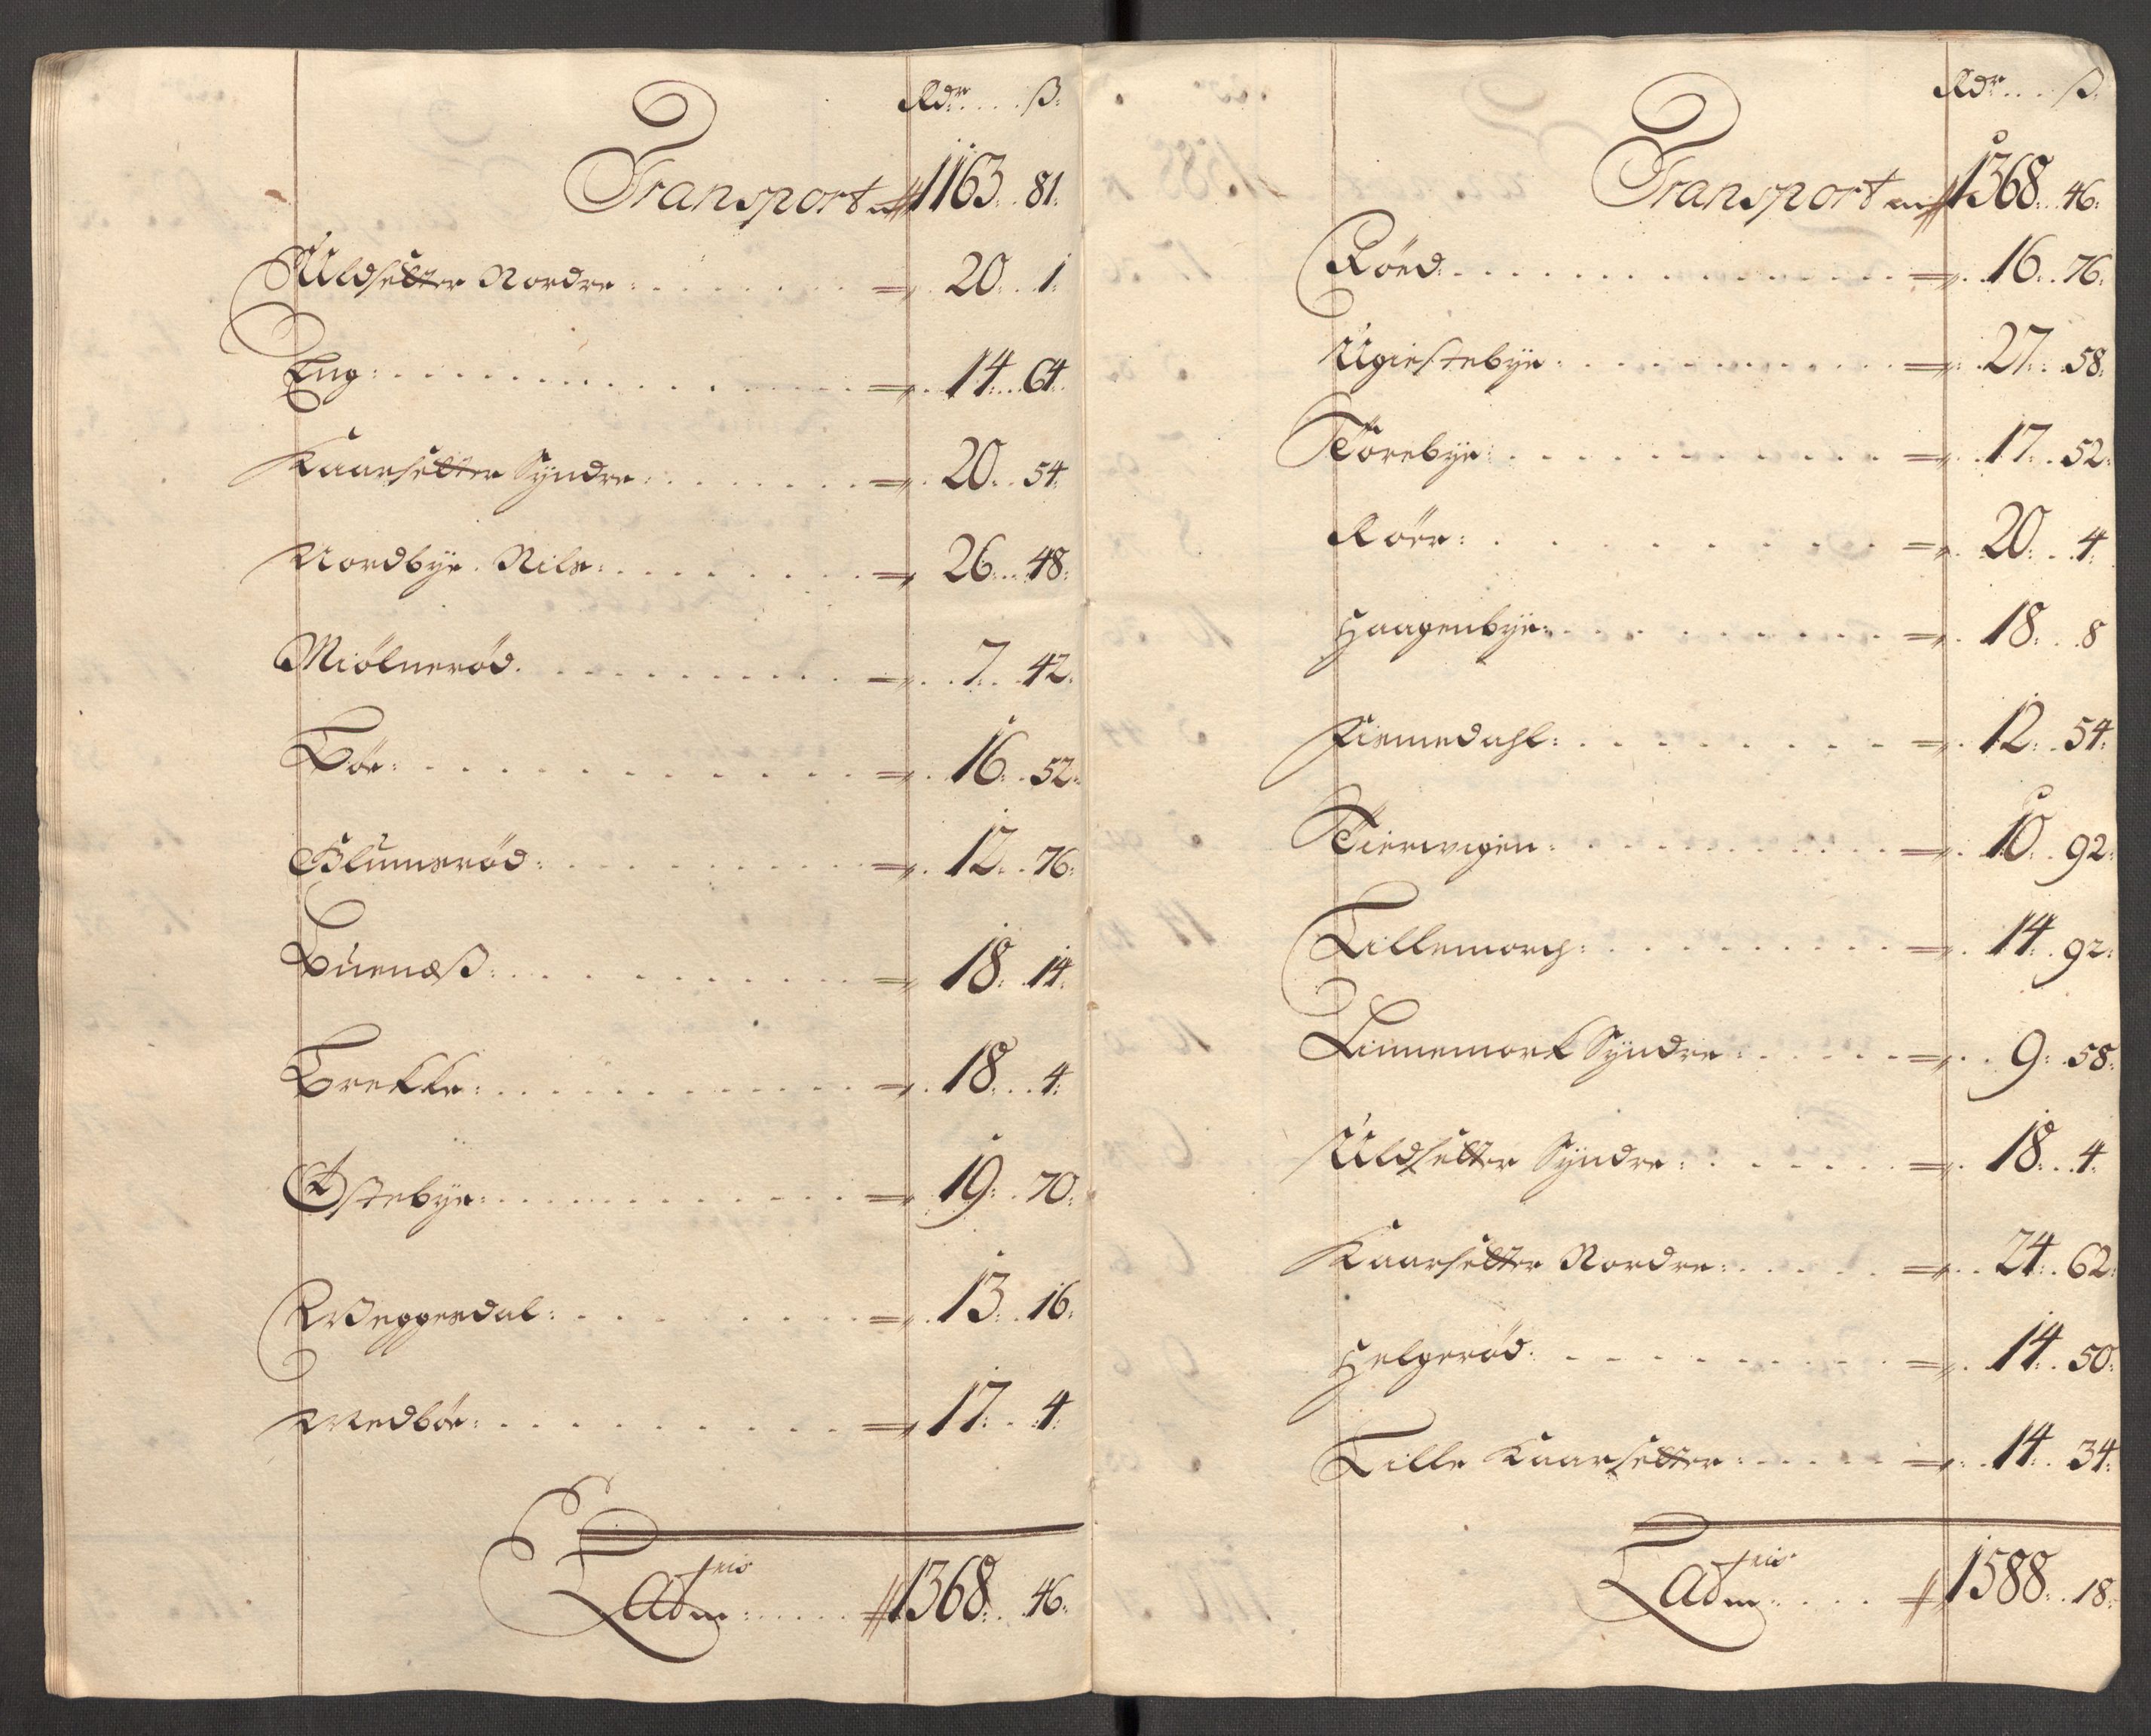 Rdr. . . . ß:
Transport 1163. . 81.
Uldsetter Nordre: 20. . 1.
Eng: 14. . 64.
Kaarsetter Syndre: 20. . 54.
Nordbye Nils: 26. . 48.
Miölnerød. 7. . 42.
Bör: 16. . 52.
Blumerød: 12. . 76.
Buenæß: 18. . 14.
Brekke: 18. . 4.
Østebye: 19. . 70.
Weggerdal: 13. . 16.
Wedbör: 17. . 4.
Latus 1368. . 46.
Rdr. . . ß.
Transport 1368. . 46.
Röed: 16. . 76.
Ugiestebye: 27. . 58.
Torebye: 17. . 52.
Röer: 20. . 4.
Haagenbye: 18. . 8
Fiemedahl: 12. . 54.
Tiervigen: 10. . 92.
Lillemorch: 14. . 92.
Linnemork Syndre: 9. . 58.
Uldsetter Syndre: 18. . 4.
Kaarsetter Nordre: 24. . 62.
Helgerød: 14. . 50.
Lille Kaarsetter: 14. . 34.
Latus 1588. . 18.